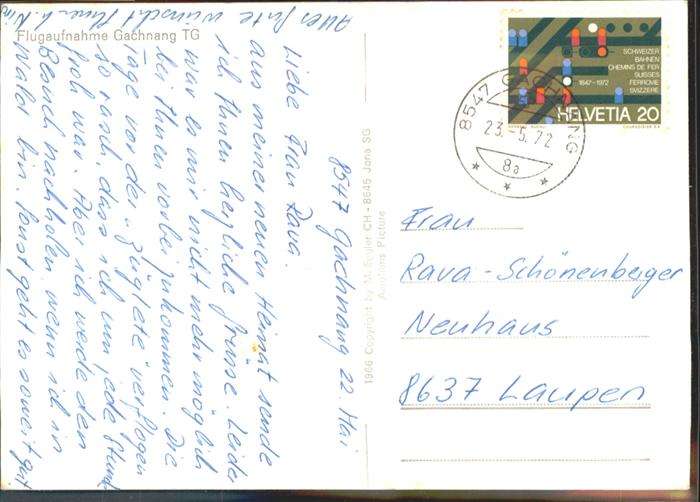 Flugaufnahme Gachnang TG
8547 Gachnang 22. Mai
Liebe Frau Rava.
aus meiner neuen Heimat sende
ich Ihnen herzliche Grüsse. Leider
war es mir nicht mehr möglich
bei Ihnen vorbei zukommen. Die
Tage vor der "Züglete" verflogen
so rasch, dass ich um jede Stunde
froh war. Aber ich werde den
Besuch nachholen wenn ich in
Wald bin. Sonst geht es soweit gut
Alles Gute wünscht Ihnen
1966 Copyright by M. CH - 8645 Jona SG
Picture
SCHWEIZER
BAHNEN
CHEMINS DE FER
SUISSES
FERROVIE
SVIZZERE
1847-1972
HELVETIA 20
8547 GACHNANG
23.-5.72
8a
Frau
Rava-Schönenberger
Neuhaus
8637 Laupen